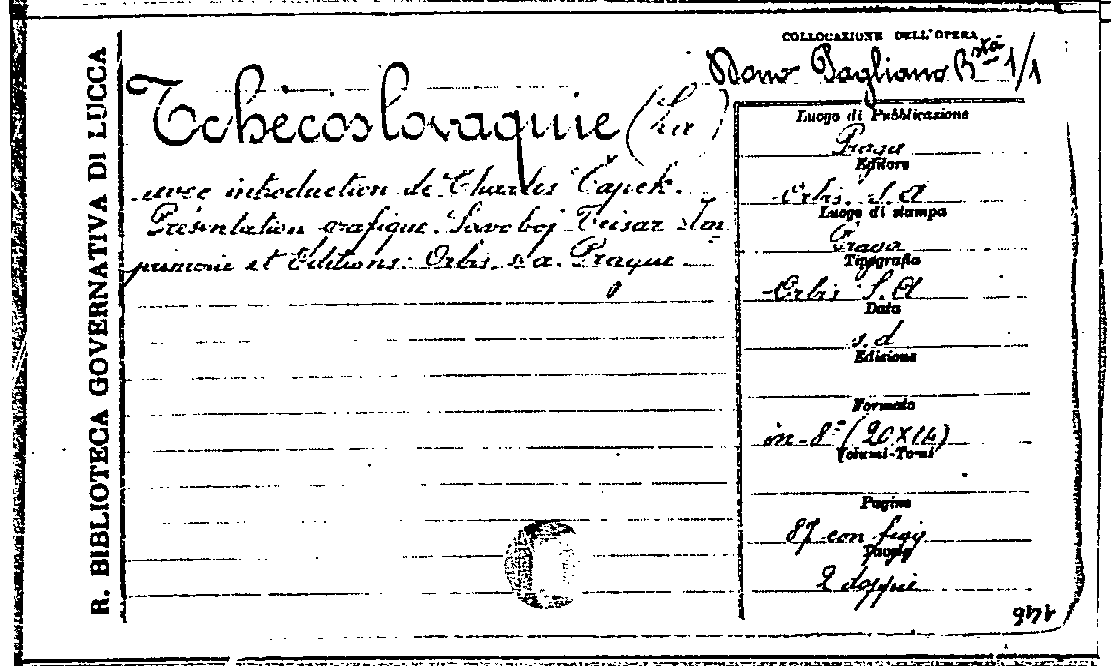 R. BIBLIOTECA GOVERNATIVA DI LUCCA
COLLOCAZIONE DELL'OPERA
Dono Pagliano Bsta 1/1
Tchecoslovaquie (La)
avec introduction de Charles Čapek.
Présentation grafique. Tveisar Im
primerie et Editions: Orbis. s. a. Prague
Luogo di Pubblicazione
Praga
Editore
Orbis. S.A
Luogo di stampa
Praga
Tipografia
Orbis S.A
Data
s.d
Edizione
Formato
in-8° (20×14)
Volumi-Tomi
Pagine
87 con figg
Tavole
2 doppie